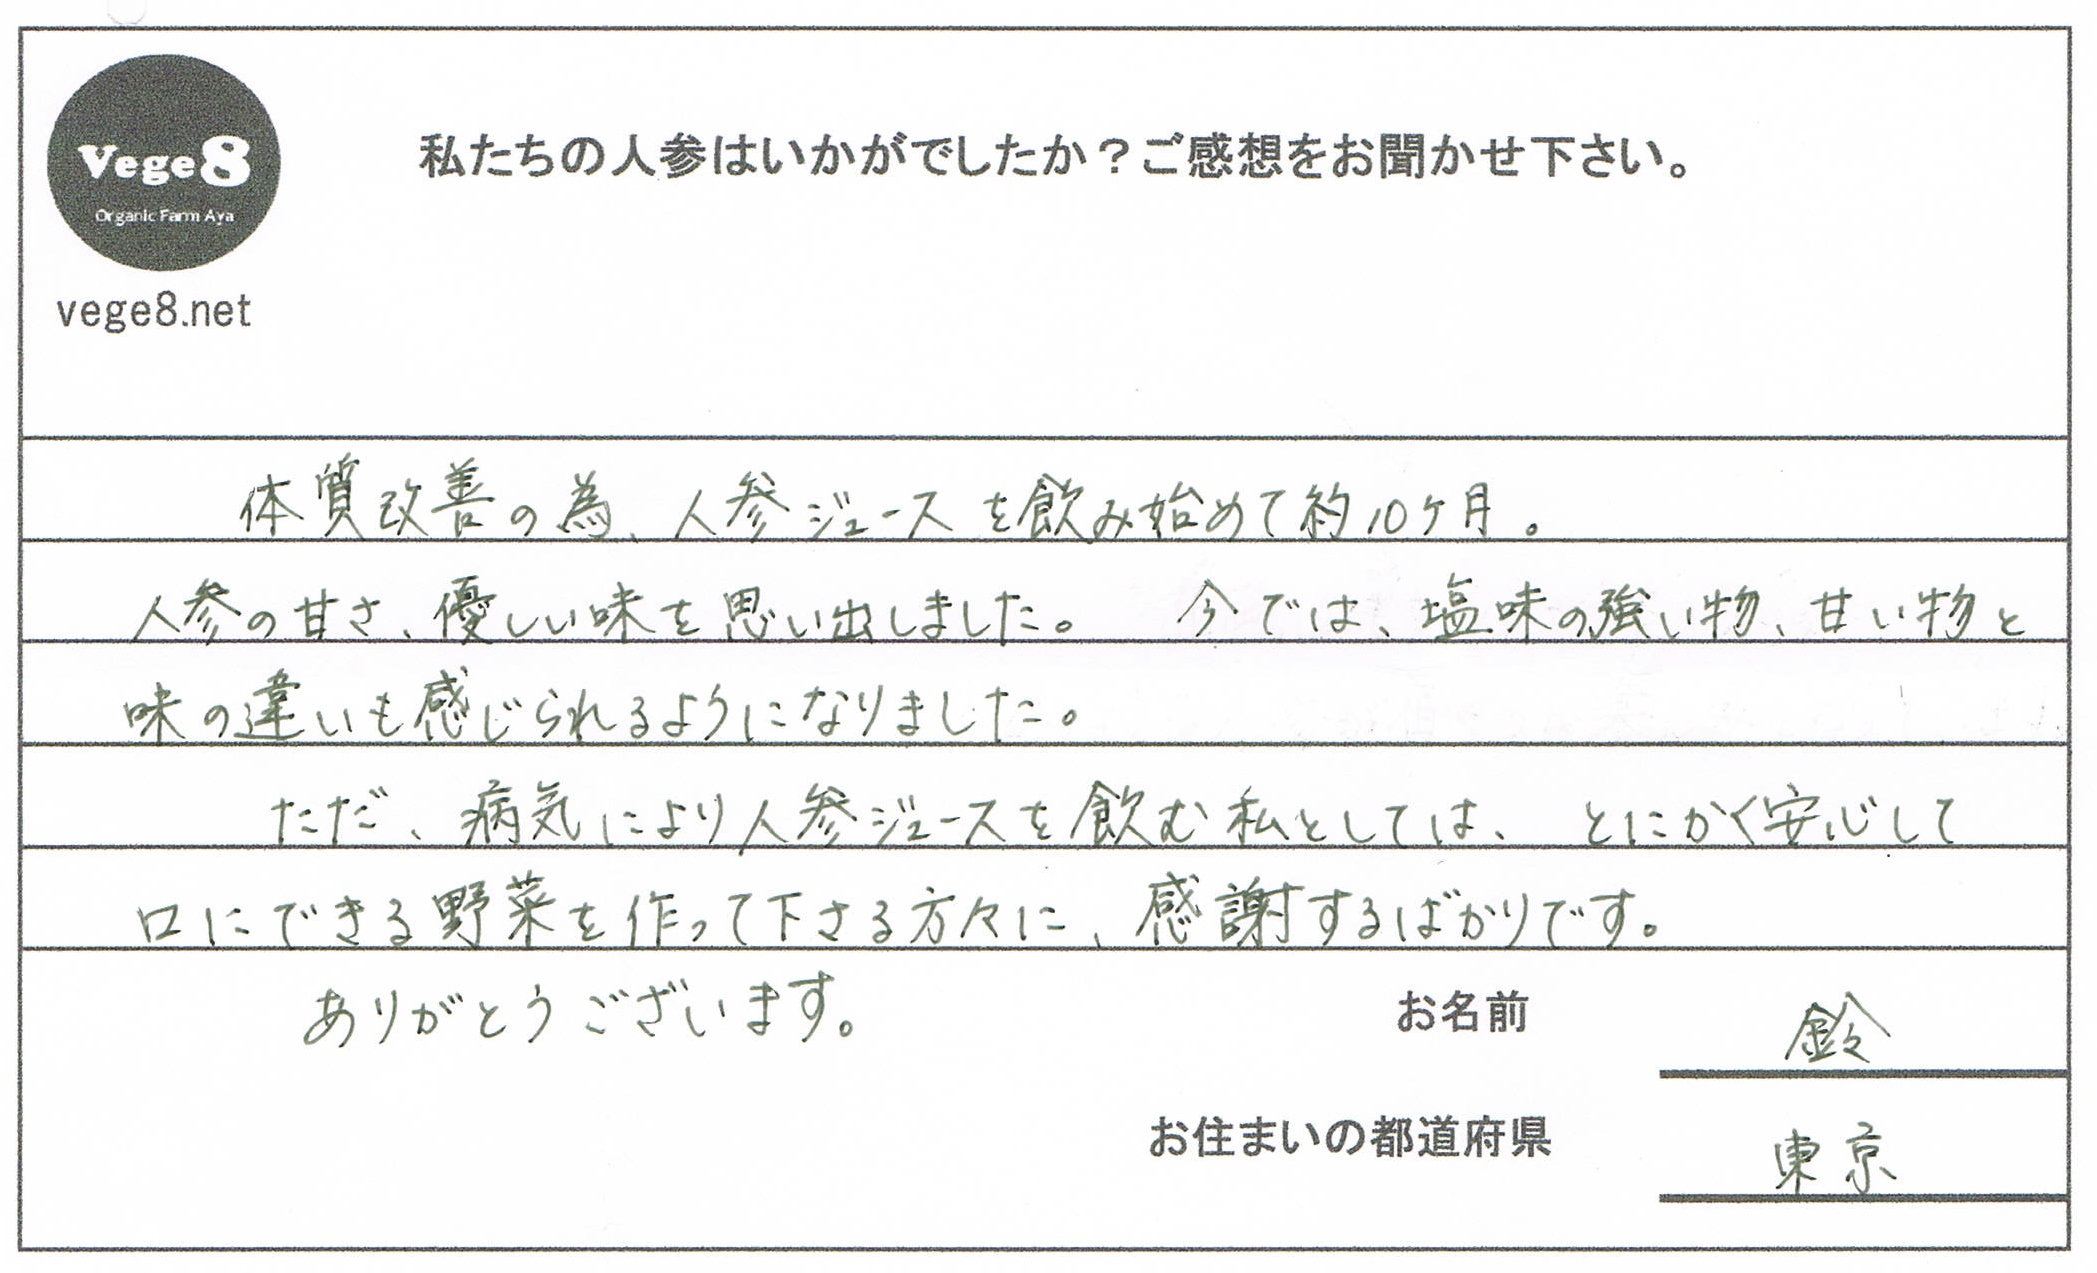 Vege8
Organic Farm Aya
vege8.net
私たちの人参はいかがでしたか？ご感想をお聞かせ下さい。
体質改善の為、人参ジュースを飲み始めて約10ヶ月。
人参の甘さ、優しい味を思い出しました。 今では、塩味の強い物、甘い物と
味の違いも感じられるようになりました。
ただ、病気により人参ジュースを飲む私としては、とにかく安心して
口にできる野菜を作って下さる方々に、感謝するばかりです。
ありがとうございます。
お名前 鈴
お住まいの都道府県 東京